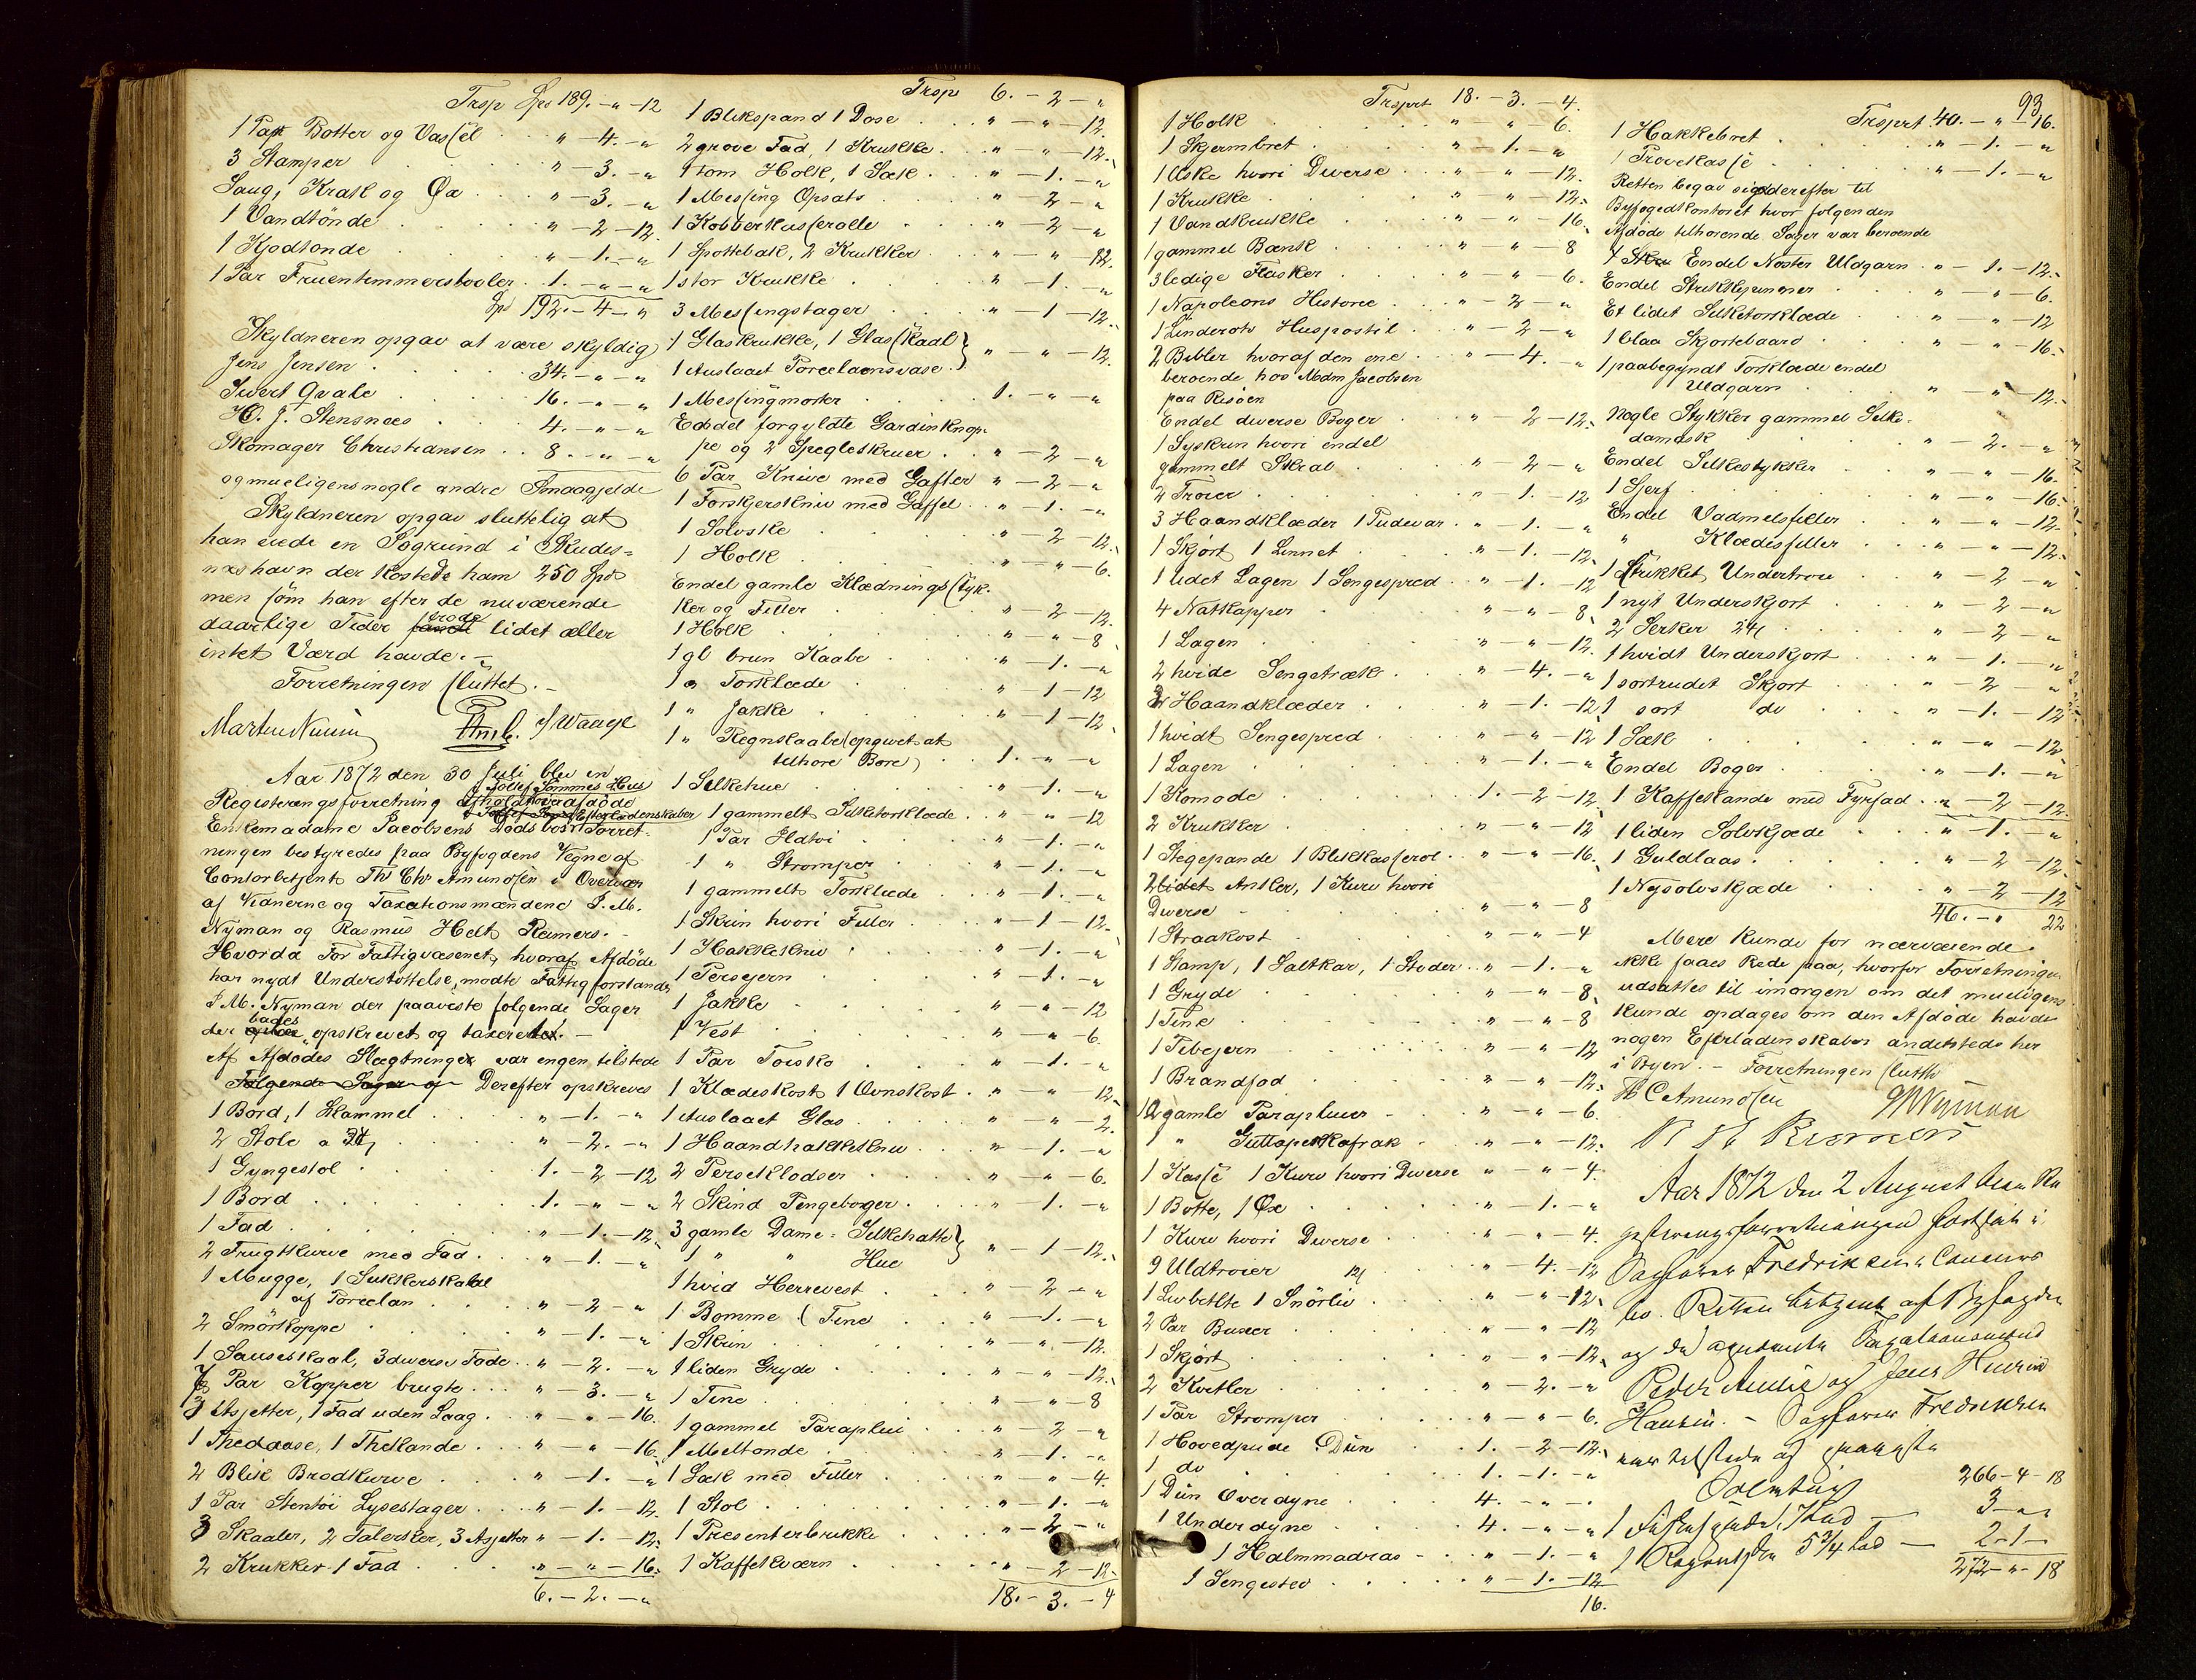 Trsp Spd 189. - " - 12
1 Part Botter og Vassel . . " - 4. - "
3 Stamper . . " - 3. - "
Saug, Krak og Øx . . " - 3. - "
1 Vandtönde . . " - 2 - 12.
1 Kjödtonde . . " - 1. - "
1 Par Fruentimmerstövler . 1. - " - "
Spd 192. - 4 - "
Skyldneren opgav at være skyldig
Jens Jensen . . 34. - " - "
Sivert Qvale . . 16. - " - "
H. J. Stensnæs . . 4. - " - "
Skomager Christiansen . . 8. - " - "
og mueligens nogle andre Smaagjelde
Skyldneren opgav sluttelig at
han eiede en Søgrund i Skudes=
næshavn der kostede ham 250 Spd
men som han efter de nuværende
daarlige Tider trode lidet eller
intet Værd havde. -
Forretningen sluttet. -
Marten Nunn J Waage
Aar 1872 den 30 Juli blev en
i Tollef Tommes Hus
Registeringsforretning afholdt over afdöde
Efterladenskaber
Enkemadame Jacobsens Dödsbo. Forret-
ningen bestyredes paa Byfogdens Vegne af
Contorbetjent Th. Chr Amundsen i Overvær
af Vidnerne og Taxationsmændene J. M.
Nyman og Rasmus Helt Reimers. -
Hvorda For Fattigvæsenet, hvoraf Afdöde
har nydt Understöttelse, mödte Fattigforstander
J. M. Nyman der paaviste folgende Sager
der bades opskrevet og taxeret. -
Af Afdödes Slægtninger var engen tilstede
Folgende Sager og Derefter opskreves
1 Bord, 1 Skammel . . " - 1. - "
2 Stole a 24/ . . " - 2. - "
1 Gyngestol . . 1. - 2 - 12
1 Bord . . 1. - " - "
1 Fad . . " - 1. - 12.
2 Frugtkurve med Fad . . " - 1. - "
1 Mugge, 1 Sukkerskaal
af Porcelan . . " - 2 - "
2 Smörkoppe . . " - 1. - "
1 Sauseskaal, 3 diverse Fade . . " - 2. - "
7 Par Kopper brugte . . " - 3. - "
3 Asjetter, 1 Fad uden Laag . . " - " - 16.
1 Thedaase, 1 Thekande . . " - " - 16.
2 Blik Brodkurve . . " - 1. - "
1 Par Stentöi Lysestager . . " - 1. - 12.
3 Skaaler, 2 Talerker, 3 Asjetter " - 1. - 12.
2 Krukker 1 Fad . . " - " - 16.
6. - 2. - "
Trsp 6. - 2 - "
1 Blikspand 1 Dose . . " - " - 12.
2 grove Fad, 1 Krukke . . " - " - 12.
1 tom Holk, 1 Sæk . . " - 1. - "
1 Messing Opsats . . " - 2 - "
1 Kobberkasserolle . . " - 2 - "
1 Spottebak, 2 Krukker . . " - " - 12.
1 stor Krukke . . " - 1. - "
3 Messingstager . . " - 1 - 12.
1 Glaskrukke, 1 Glasskaal }
1 Auslaaet Porcelænsvase } " - " - 12.
1 Messingmorter . . 1. - " - "
Endel forgyldte Gardinknop-
pe og 2 Speglskruer . . " - 2 - "
6 Par Knive med Gafler " - 2 - "
1 Forskjerskniv med Gaffel . . " - 1. - "
1 Solvske . . " - 2 - 12.
1 Holk . . " - " - 6.
Endel gamle Klædningsstyk-
ker og Filler . . " - 2 - 12.
1 Holk . . " " - 8
1 gl brun Kaabe . . " - 1. - "
1 " Torklæde . . " - 1 - 12
1 " Jakke . . " - 1 - 12.
1 " Regnkaabe (opgivet at
tilhore Bore) . . 1. - " - "
1 Silkehue . . " - 1. - "
1 gammelt Silketorklæde . . " " - 12
1 Par Ildtöi . . " - 1. - "
1 " Stromper . . " - 1. - "
1 gammelt Torklæde . . " - 1. - "
1 Skrin hvori Filler . . " - 1 - 12.
1 Hakkekniv . . " - 1. - "
1 Persejern . . " - 1. - "
1 Jakke . . " - " - 12
1 Vest . . " - " - 6.
1 Par Toisko . . " - 1. - "
1 Klædeskost 1 Ovnskost . . " - " - 12.
1 Auslaaet Glas . . " - " - 2.
1 Haandhakkekniv . . " - 1. - "
2 Perseklodser . . " - " - 6.
2 Skind Pengeborger . . " - 1. - "
3 gamle Dame = Silkehatte }
1 " " Hue } " - 1 - 12.
1 hvid Herrevest . . " - 2 - "
1 Bomme (Tine . . " - 1. - "
1 Skrin . . " - " - 12.
1 liden Gryde . . " - " - 12.
1 Tine . . " - " - 8
1 gammel Paraplui . . " - 2 - "
1 Meltonde . . " - 1. - "
1 Sæk med Filler . . " - " - 4.
1 Stol . . " - 1. - "
1 Presenterbrikke . . " - 2 - "
1 Kaffekværn . . " - 2 - 12.
18. - 3. - 4
Trsprt 18. - 3. - 4.
1 Holk . . " - " - 6.
1 Skjermbret . . " - 1. - "
1 Æske hvori Diverse . . " - " - 12.
1 Krukke . . " - " - 12.
1 Vandkrukke . . " - " - 16.
1 gammel Bænk . . " - " - 8
3 ledige Flasker . . " - " - 6.
1 Napoleons Historie . . " - 2 - "
1 Linderots Huspostil . . " - 2 - "
2 Bibler hvoraf den ene . . " - 4. - "
beroende hos Mdm Jacobsen
paa Risöen
Endel diverse Boger . . " - 2 - 12.
1 Syskrin hvori endel
gammelt Skrab . . " - 2 - "
2 Troier . . " 1. - 12
3 Haandklæder 1 Pudevar . . " - 1. - "
1 Skjört 1 Linnet . . " - 1. - 12.
1 lidet Lagen 1 Sengespred . . " - 1. - 12
4 Natkapper . . " - " - 8
1 Lagen . . " - " - 12.
2 hvide Sengetræk . . " - 4. - "
2 Haandklæder . . " - 1. - 12
1 hvidt Sengespred . . " - " - 12
1 Lagen . . " - 1. - "
1 Komode . . 1. - 2 - 12.
2 Krukker . . " - " - 12
1 Stegepande 1 Blikkasserol . . " - " - 16.
2 lidet Antler, 1 Kurv hvori
Diverse . . " - " - 8
1 Straakost . . " - " - 4
1 Stamp, 1 Saltkar, 1 Stoder . . " - 1. - "
1 Gryde . . " - " - 8
1 Tine . . " - " - 8
1 Pibejern . . " - " - 12
1 Brandfod . . " - " - 12.
2 gamle Parapluier . . " - " - 6.
1 " Guttaperkafrak . . " - " - 12.
1 Kasse 1 Kurv hvori Diverse " - " - 4.
1 Botte, 1 Öxe . . " - 1. - "
1 Kurv hvori Diverse . . " - " - 4.
9 Uldtroier 12/ . . " - 4. - 12
1 Livbelte 1 Snörliv . . " - " - 12.
2 Par Buxer . . " - " - 12
1 Skjört . . " - " - 12.
2 Kvitler . . " - 2. - "
1 Par Stromper . . " - " - 6.
1 Hovedpude Dün . . 1. - 2 - 12.
1 do . . 1. - 1. - "
1 Dün Overdyne . . 4. - " - "
1 Underdyne . . 4. - " - "
1 Halmmadras . . " - 1. - "
1 Sengested . . " - 1. - 12
16.
93
Trsprt. 40. - " - 16.
1 Hakkebret . . " - 1. - "
1 Provekasse . . " - 1. - "
Retten begav sig derefter til
Byfogedkontoret hvor folgende
Afdöde tilhorende Sager var beroende
Endel Nöster Uldgarn . . " - 1. - 12.
Endel Strikkepinner . . " - " - 6.
Et lidet Silketorklæde . . " - " - 12
1 blaa Skjortebaard . . " - " - 16.
1 paabegyndt Torklæde endel
Uldgarn . . " - " - 12.
Nogle Stykker gammel Silke-
damask . . " - 2. - "
Endel Silkestykker . . " - " - 16.
1 Sjerf . . " - " - 16.
Endel Vadmelsfiller . . " - " - 12.
" Klædesfiller . . " - " - 12.
1 Strikket Undertroie . . " - 2 - "
1 nyt Underskjort . . " - 2 - "
2 Serker 24/ . . " - 2 - "
1 hvidt Underskjort . . " - 1. - "
1 sortrudet Skjort . . " - 2 - "
1 sort do . . " - 1. - 12
1 Sæk . . " - " - 12.
Endel Boger . . " - 1. - "
1 Kaffekande med Fyrfad . . " - 2 - 12.
1 liden Solvkjæde . . " - 1. - "
1 Guldlaas . . " - 2 - 12.
1 Nysolvskjæde . . " - 2 - 12
46. - " 22
Mere kunde for nærværende
ikke faaes Rede paa, hvorfor Forretningen
udsattes til imorgen om det mueligens
kunde opdages om den Afdöde havde
nogen Efterladenskaber andetsteds her
i Byen. - Forretningen sluttet
Th C Amundsen JM Nyman
R H Reimers
Aar 1872 den 2 August blev Re
gisteringsforretningen fortsat i
Sagförer Fredriksens Concurs
bo. Retten betjent af Byfogden
og de opnævnte Taxationsmænd
Peder Amlie og Jens Henrik
Hansen. - Sagförer Fredriksen
var tilstede og paaviste
266 - 4 - 18
1 Lod . . 3 - " "
1 5 3/4 Lod - 2 - 1 -
272 - " - 18